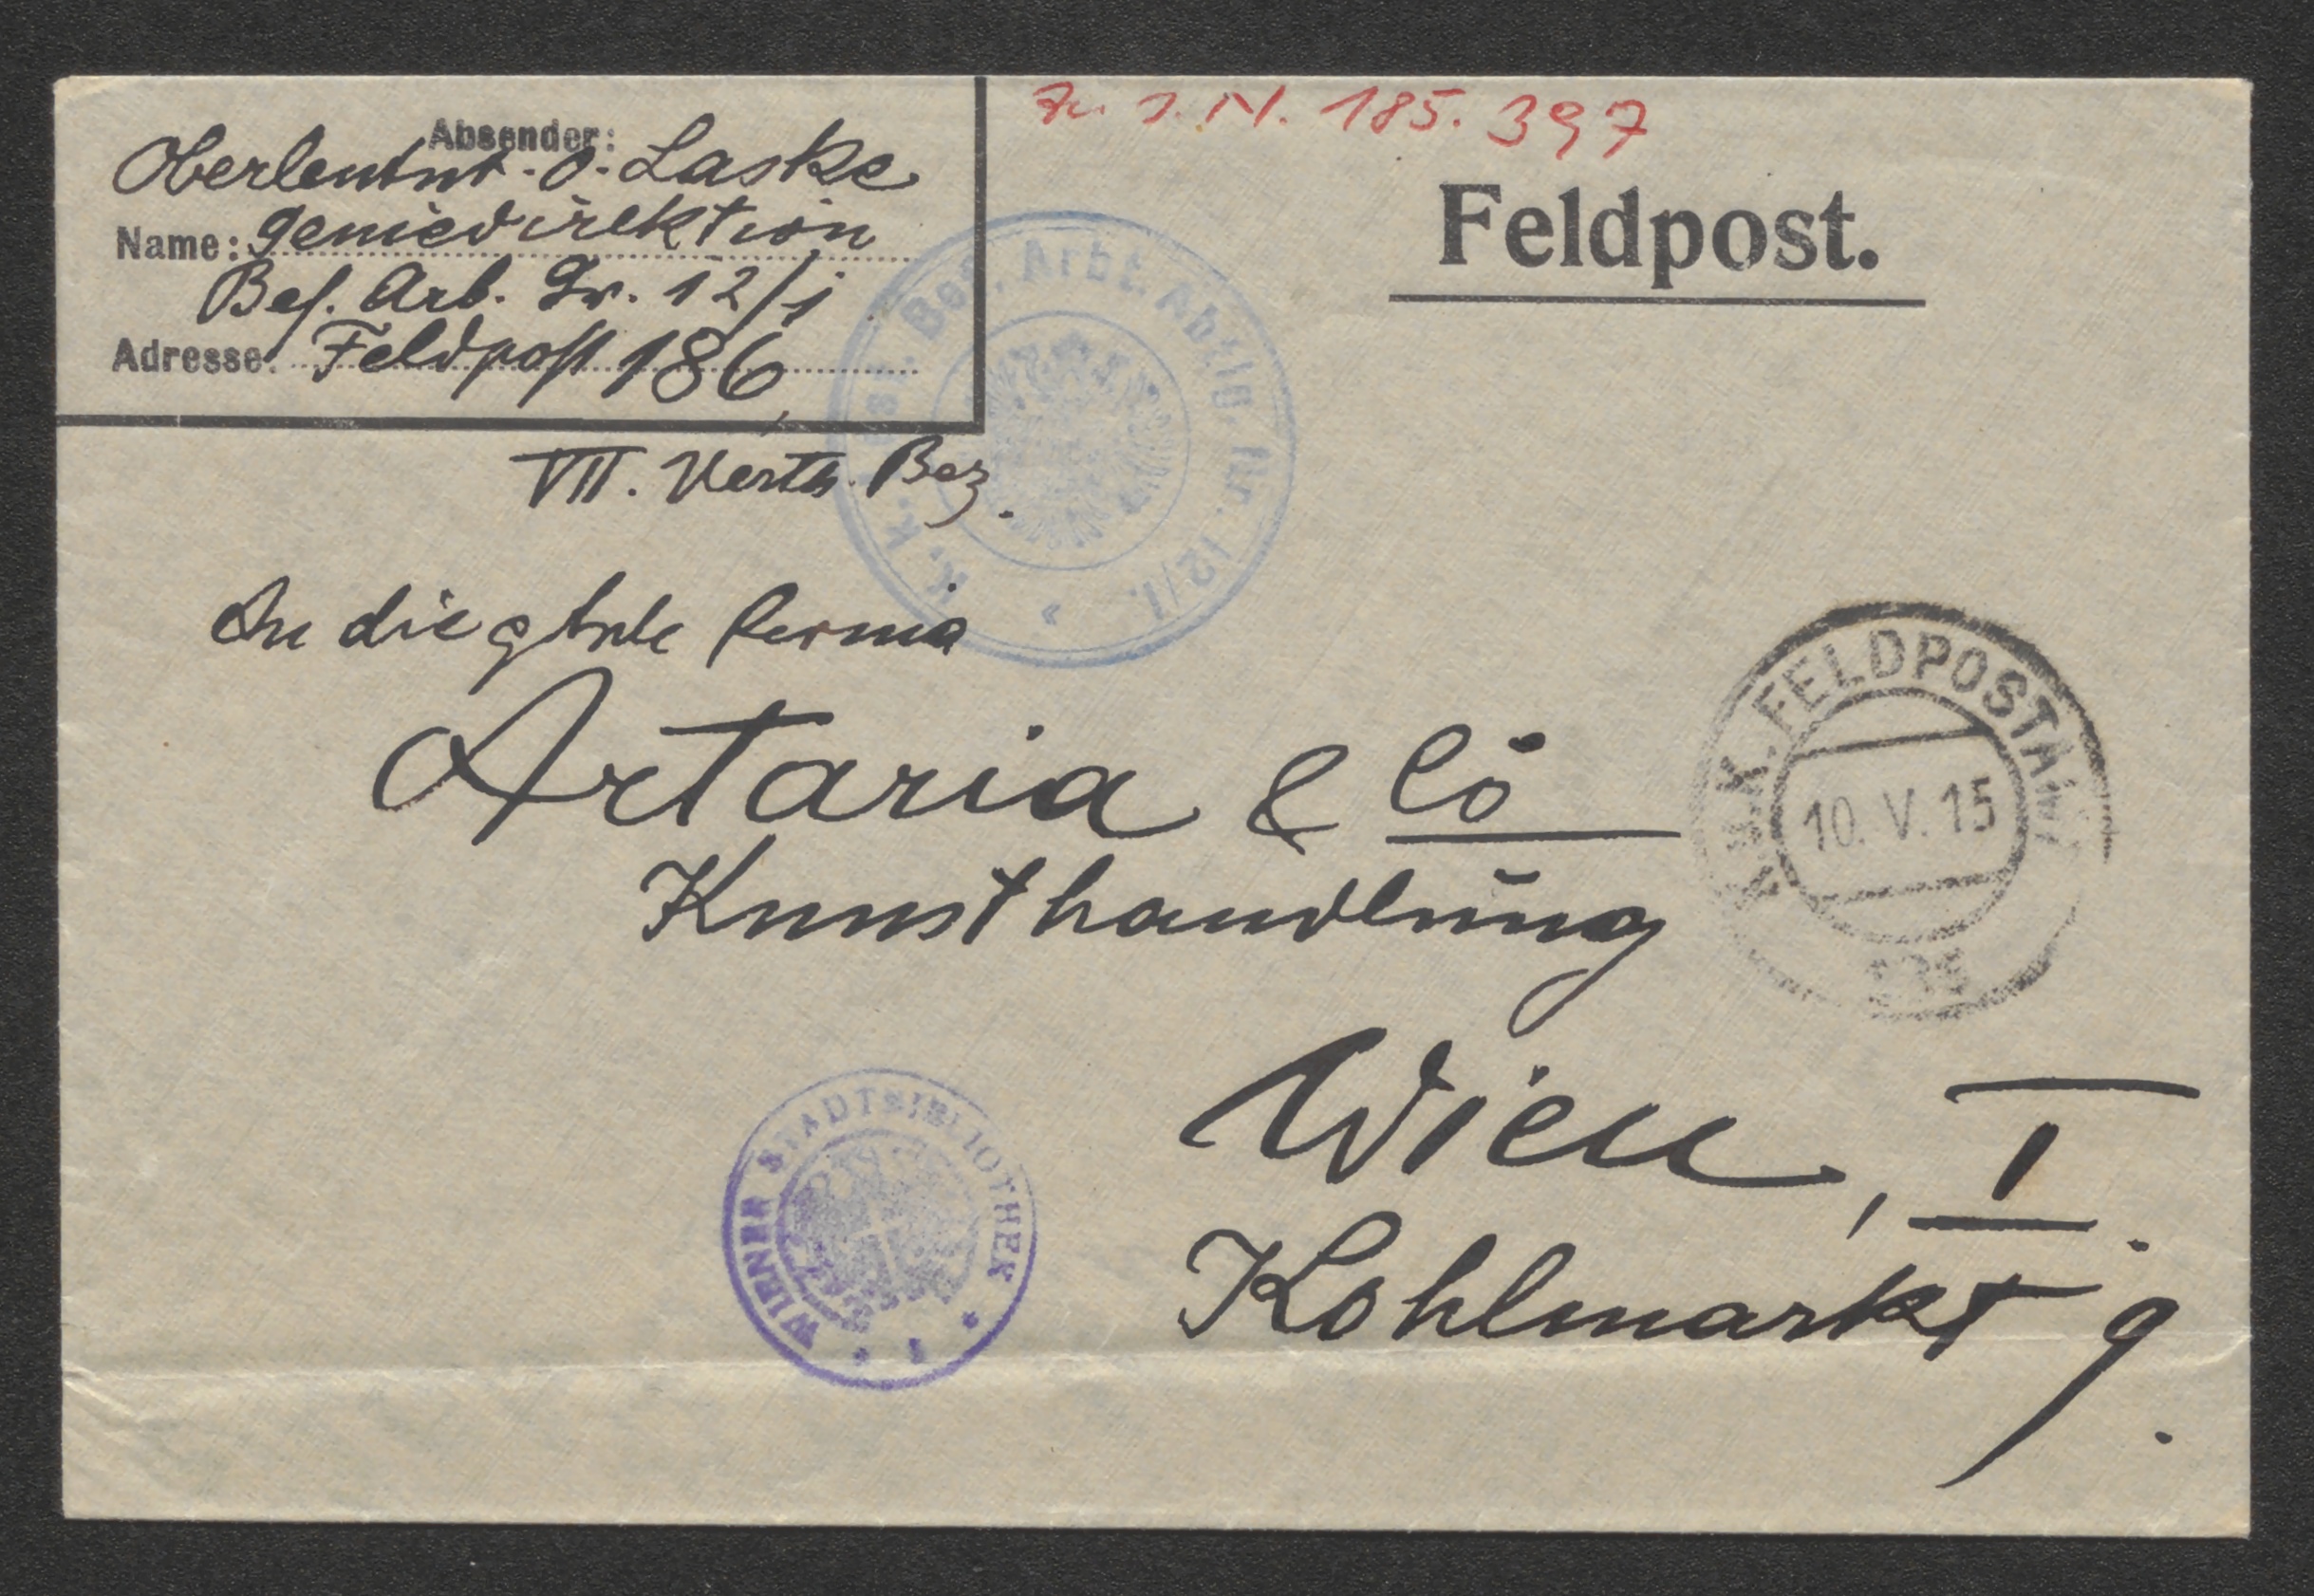 Zu I.N. 185.397
Feldpost.
Absender:
Oberleutnt. O. Laske
Name: Geniedirektion
Bef. Arb. Gr. 12/I
Adresse: Feldpost 186,
VII. Verth. Bez.
K. k. Bef. Arbt. Abtlg. Nr. 12/I.
An die gbrle Firma
Artaria & Co
Kunsthandlung
K.u.K. FELDPOSTAMT
10. V. 15
Wien, I.
Kohlmarkt 9.
WIENER STADTBIBLIOTHEK